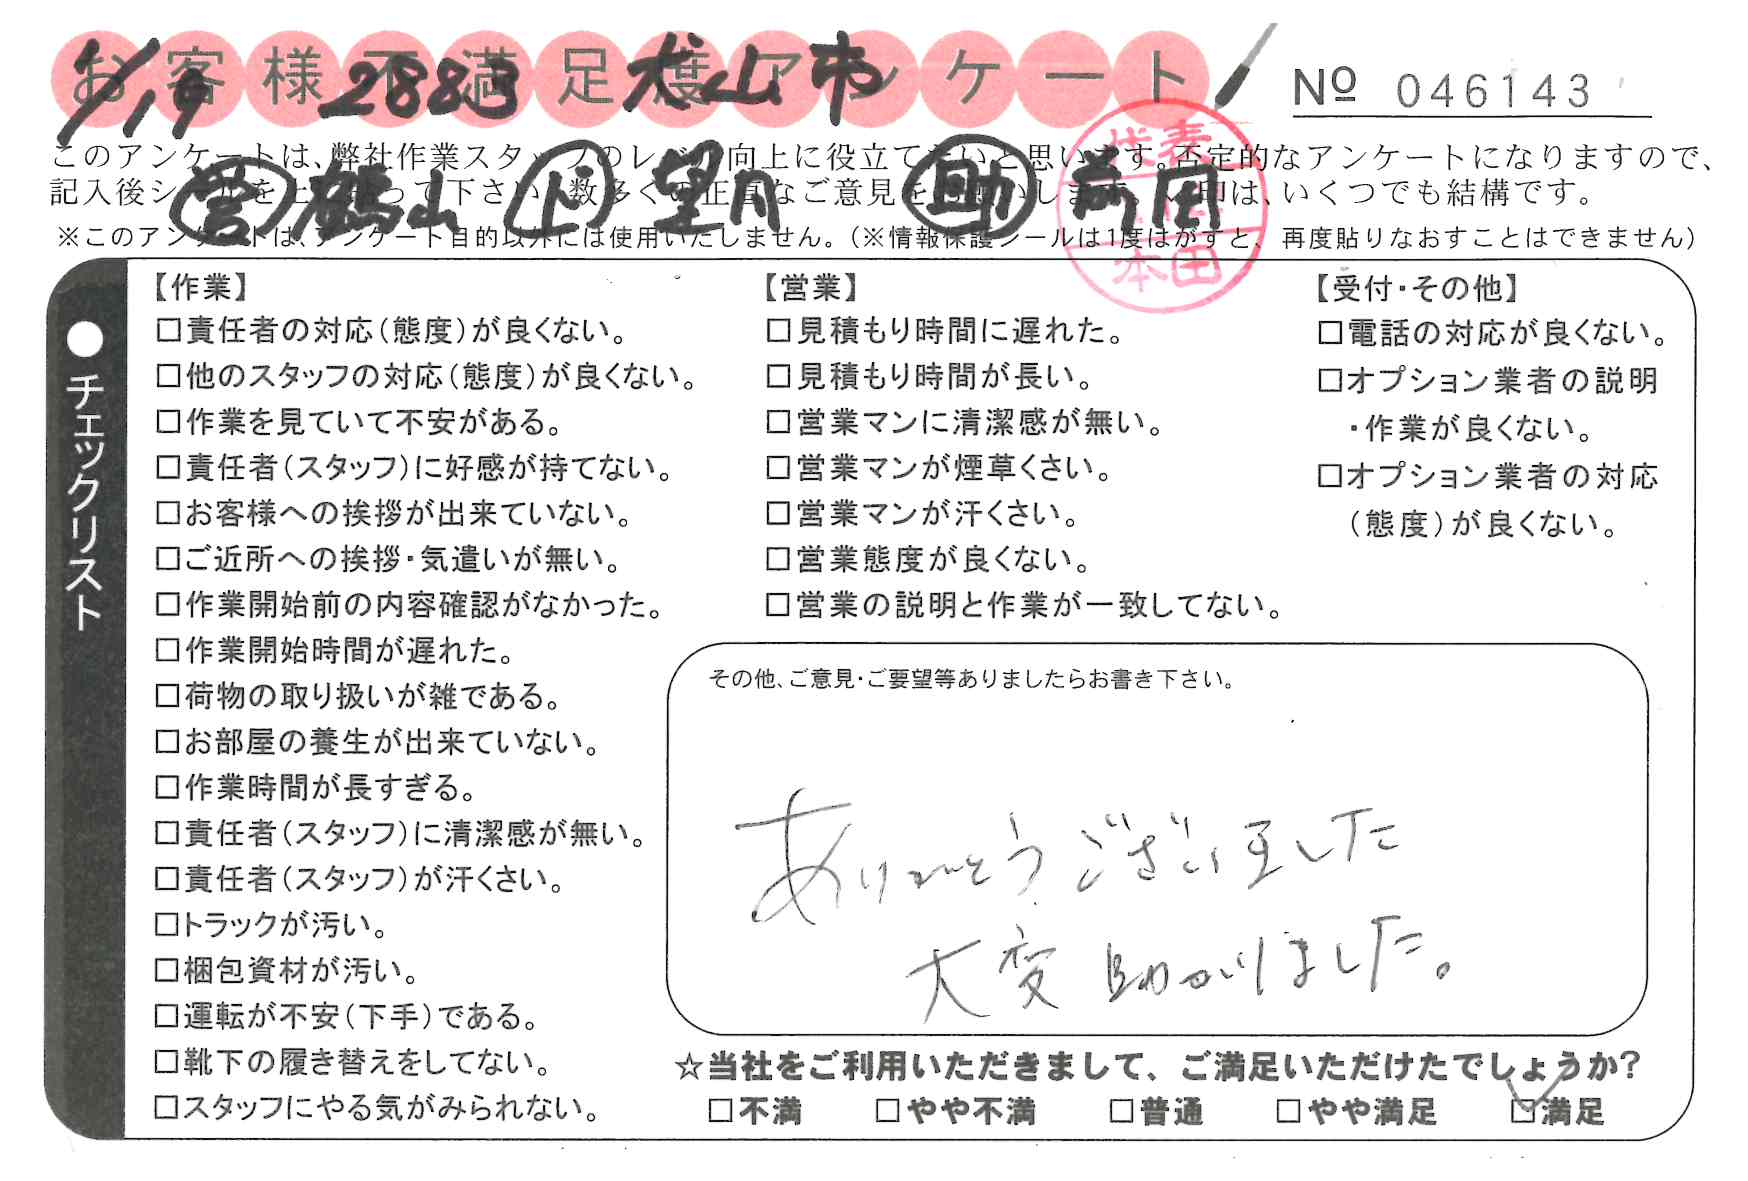 お客様不満足度アンケート
1/19 2883 犬山市
№ 046143
このアンケートは、弊社作業スタッフのレベル向上に役立てたいと思います。否定的なアンケートになりますので、
記入後シールを上に貼って下さい。数多くの正直なご意見をお願いします。✓印は、いくつでも結構です。
営 鶴山 ド 望月 助 高園
※このアンケートは、アンケート目的以外には使用いたしません。(※情報保護シールは1度はがすと、再度貼りなおすことはできません)
代表
本田
●チェックリスト
【作業】
□責任者の対応(態度)が良くない。
□他のスタッフの対応(態度)が良くない。
□作業を見ていて不安がある。
□責任者(スタッフ)に好感が持てない。
□お客様への挨拶が出来ていない。
□ご近所への挨拶・気遣いが無い。
□作業開始前の内容確認がなかった。
□作業開始時間が遅れた。
□荷物の取り扱いが雑である。
□お部屋の養生が出来ていない。
□作業時間が長すぎる。
□責任者(スタッフ)に清潔感が無い。
□責任者(スタッフ)が汗くさい。
□トラックが汚い。
□梱包資材が汚い。
□運転が不安(下手)である。
□靴下の履き替えをしてない。
□スタッフにやる気がみられない。
【営業】
□見積もり時間に遅れた。
□見積もり時間が長い。
□営業マンに清潔感が無い。
□営業マンが煙草くさい。
□営業マンが汗くさい。
□営業態度が良くない。
□営業の説明と作業が一致してない。
【受付・その他】
□電話の対応が良くない。
□オプション業者の説明
・作業が良くない。
□オプション業者の対応
(態度)が良くない。
その他、ご意見・ご要望等ありましたらお書き下さい。
ありがとうございました
大変助かりました。
☆当社をご利用いただきまして、ご満足いただけたでしょうか?
□不満 □やや不満 □普通 □やや満足 ☑満足